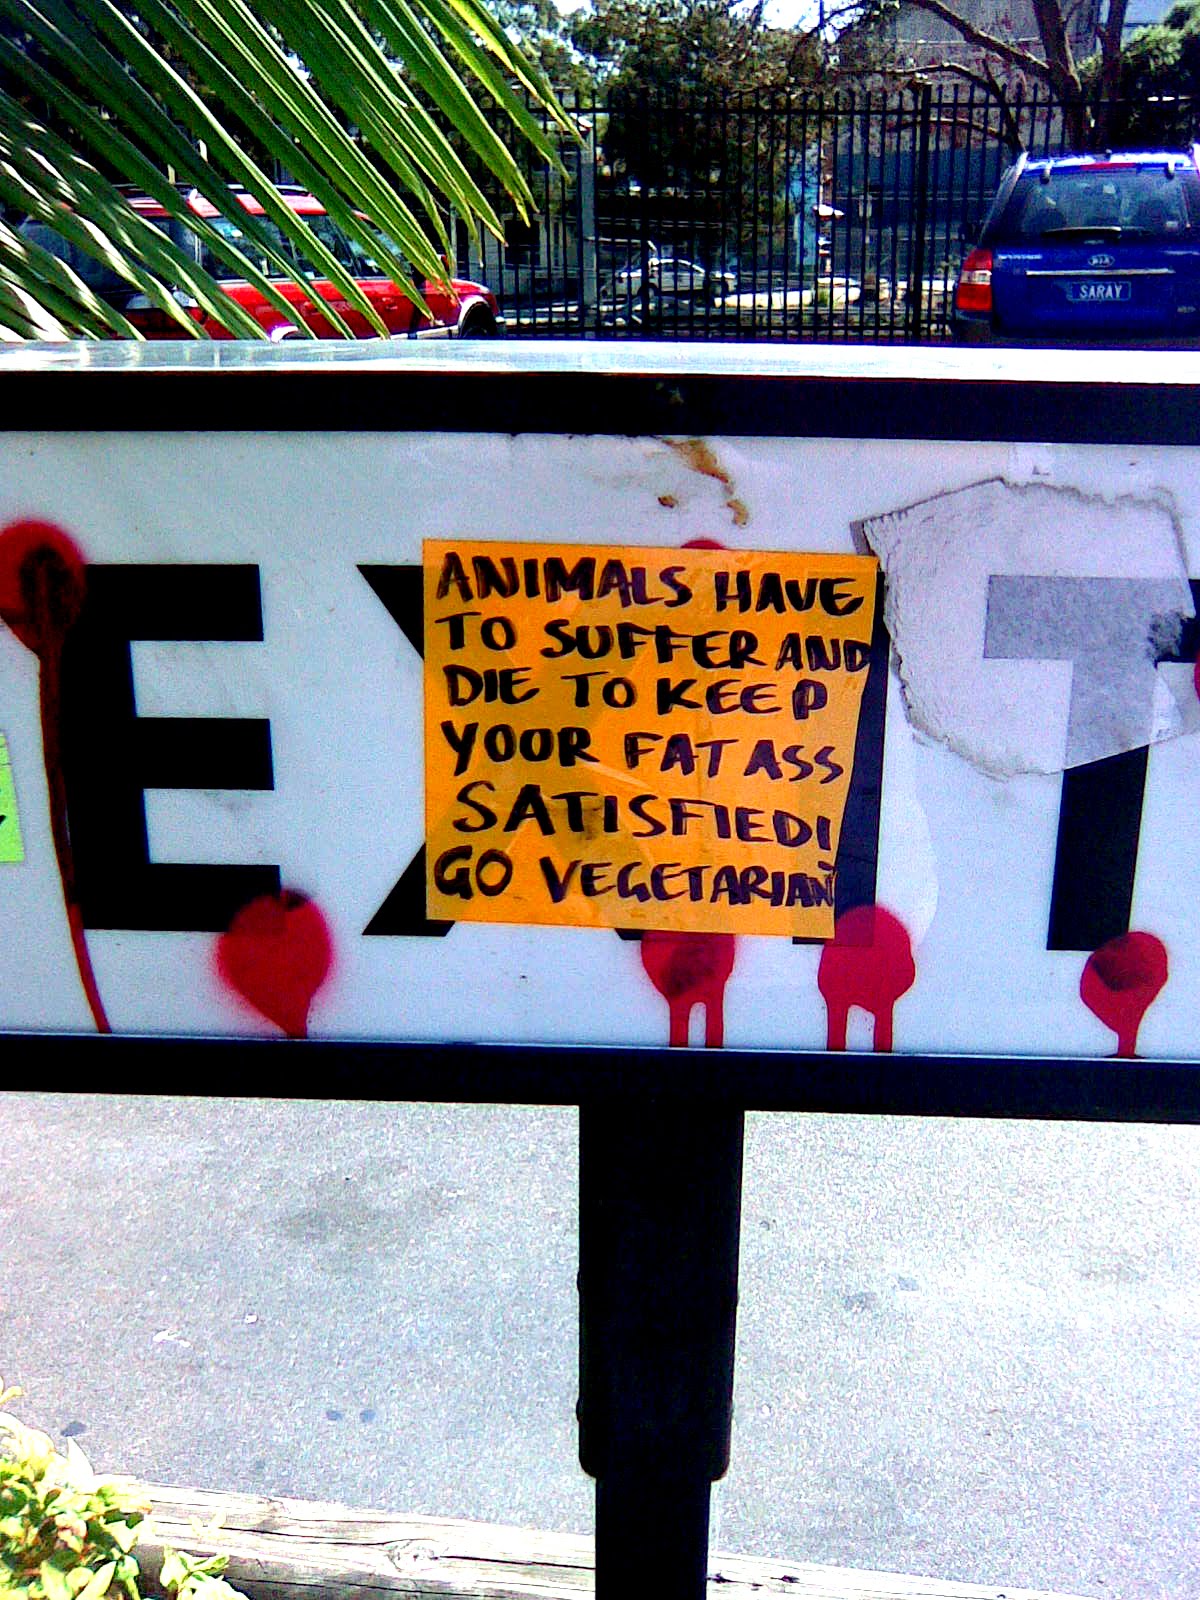 KIA
SARAY
EXIT
ANIMALS HAVE
TO SUFFER AND
DIE TO KEEP
YOUR FAT ASS
SATISFIED!
GO VEGETARIAN